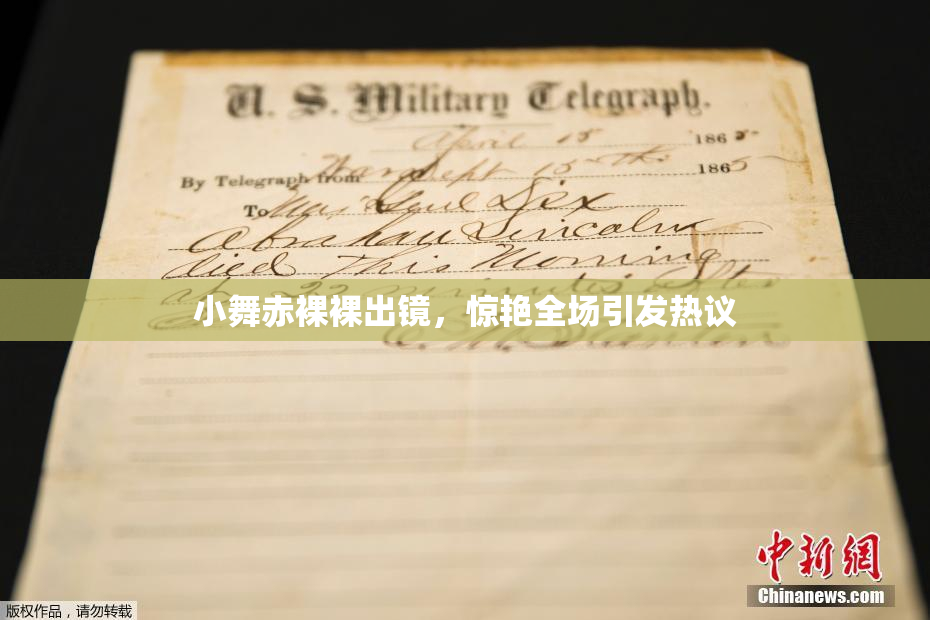 U. S. Military Telegraph.
April 15 1865
By Telegraph from War Dept 15th 1865
To Maj Genl Dix
Abraham Lincoln
died This Morning
at 22 minutes after
小舞赤裸裸出镜，惊艳全场引发热议
E. M. Stanton
中新网
Chinanews.com
版权作品，请勿转载